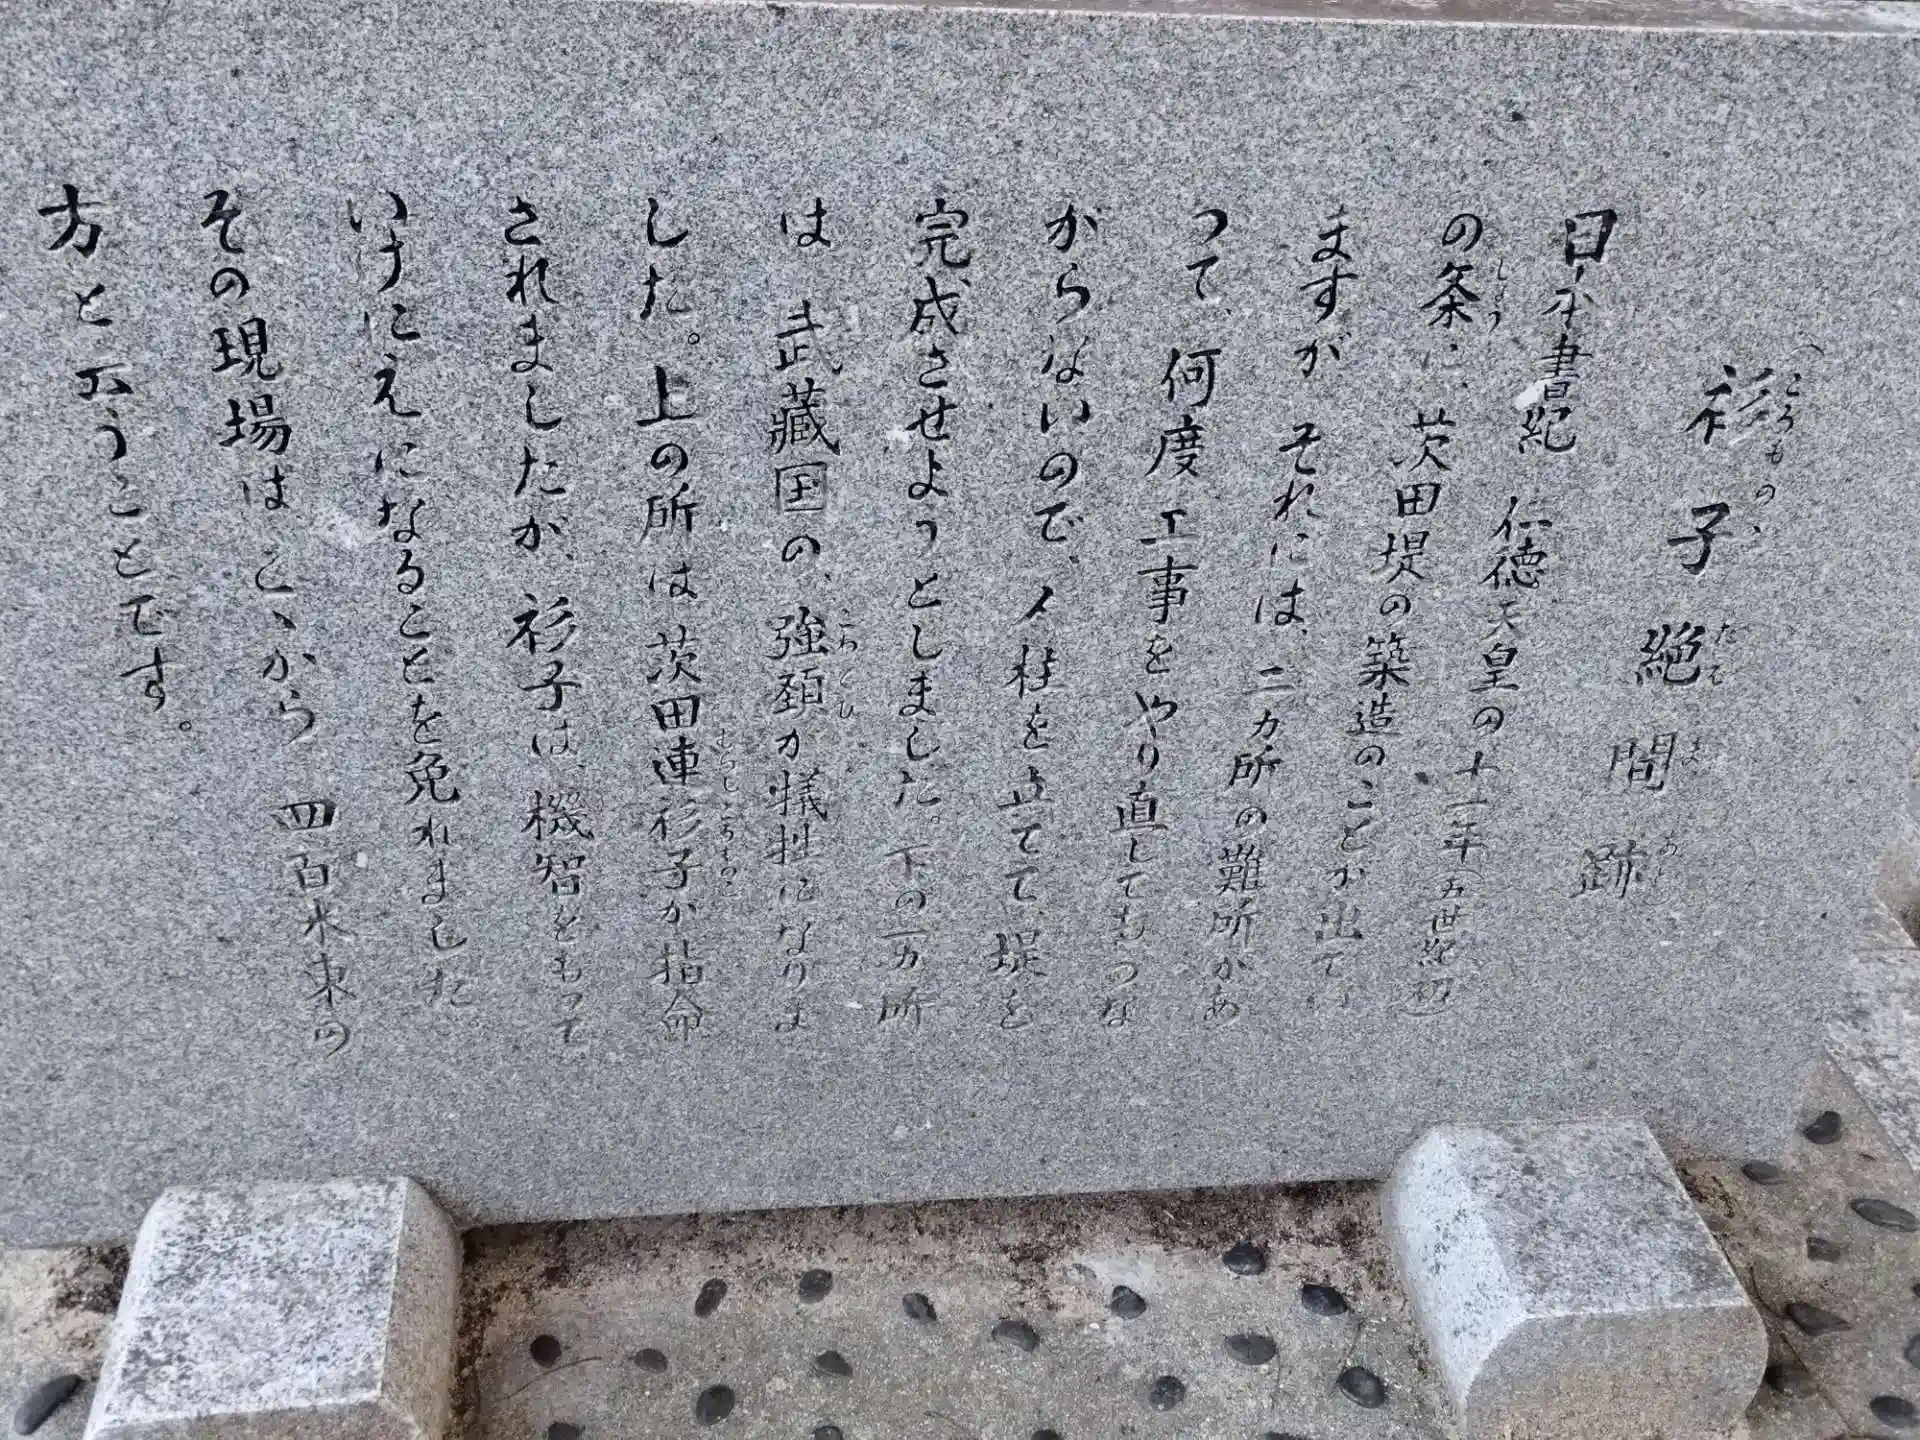 衫子絶間跡
(ころものこたえまあと)
日本書紀 仁徳天皇の十一年(五世紀初)
の条に、茨田堤の築造のことが出てい
しょう
ますが それには、二ヵ所の難所があ
って、何度工事をやり直してもつな
がらないので、人柱を立てて、堤を
完成させようとしました。下の一ヵ所
は 武蔵国の、強頚が犠牲になりま
こわくび
した。上の所は茨田連衫子が指命
むらじころものこ
されましたが、衫子は、機智をもって
いけにえになることを免れました。
その現場はこゝから 四百米東の
方と云うことです。